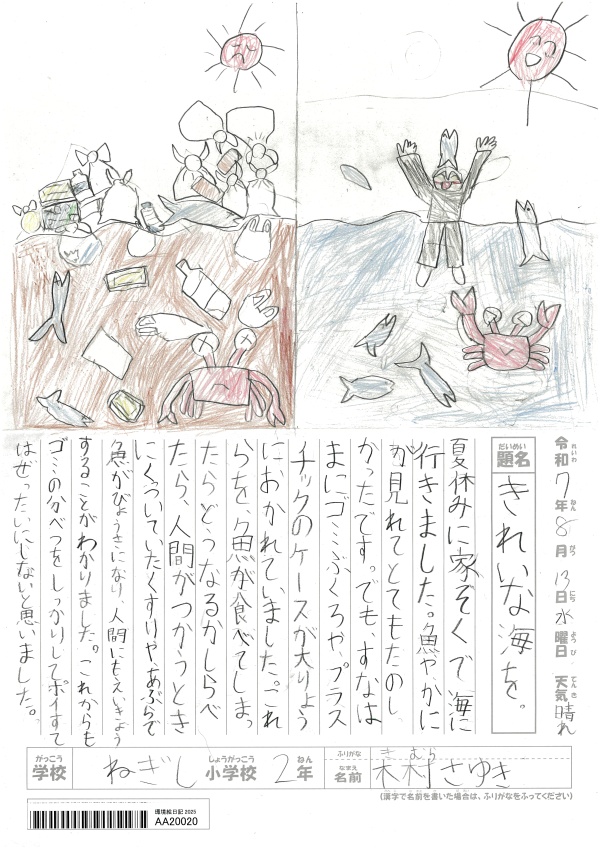 令和7年8月13日水曜日 天気晴れ
題名 きれいな海を。
夏休みに家ぞくで海に
行きました。魚やかに
が見れてとてもたのし
かったです。でも、すなは
まにゴミぶくろや、プラス
チックのケースが大りょう
におかれていました。これ
らを、魚が食べてしまっ
たらどうなるかしらべ
たら、人間がつかうとき
にくっついていたくすりや、あぶらで
魚がびょうきになり、人間にもえいきょう
することがわかりました。これからも
ゴミのかべつをしっかりしてポイすて
はぜったいにしないと思いました。
学校 ねぎし小学校 2年 名前 木村さゆき
きむら
(漢字で名前を書いた場合は、ふりがなをふってください)
環境絵日記 2025
AA20020